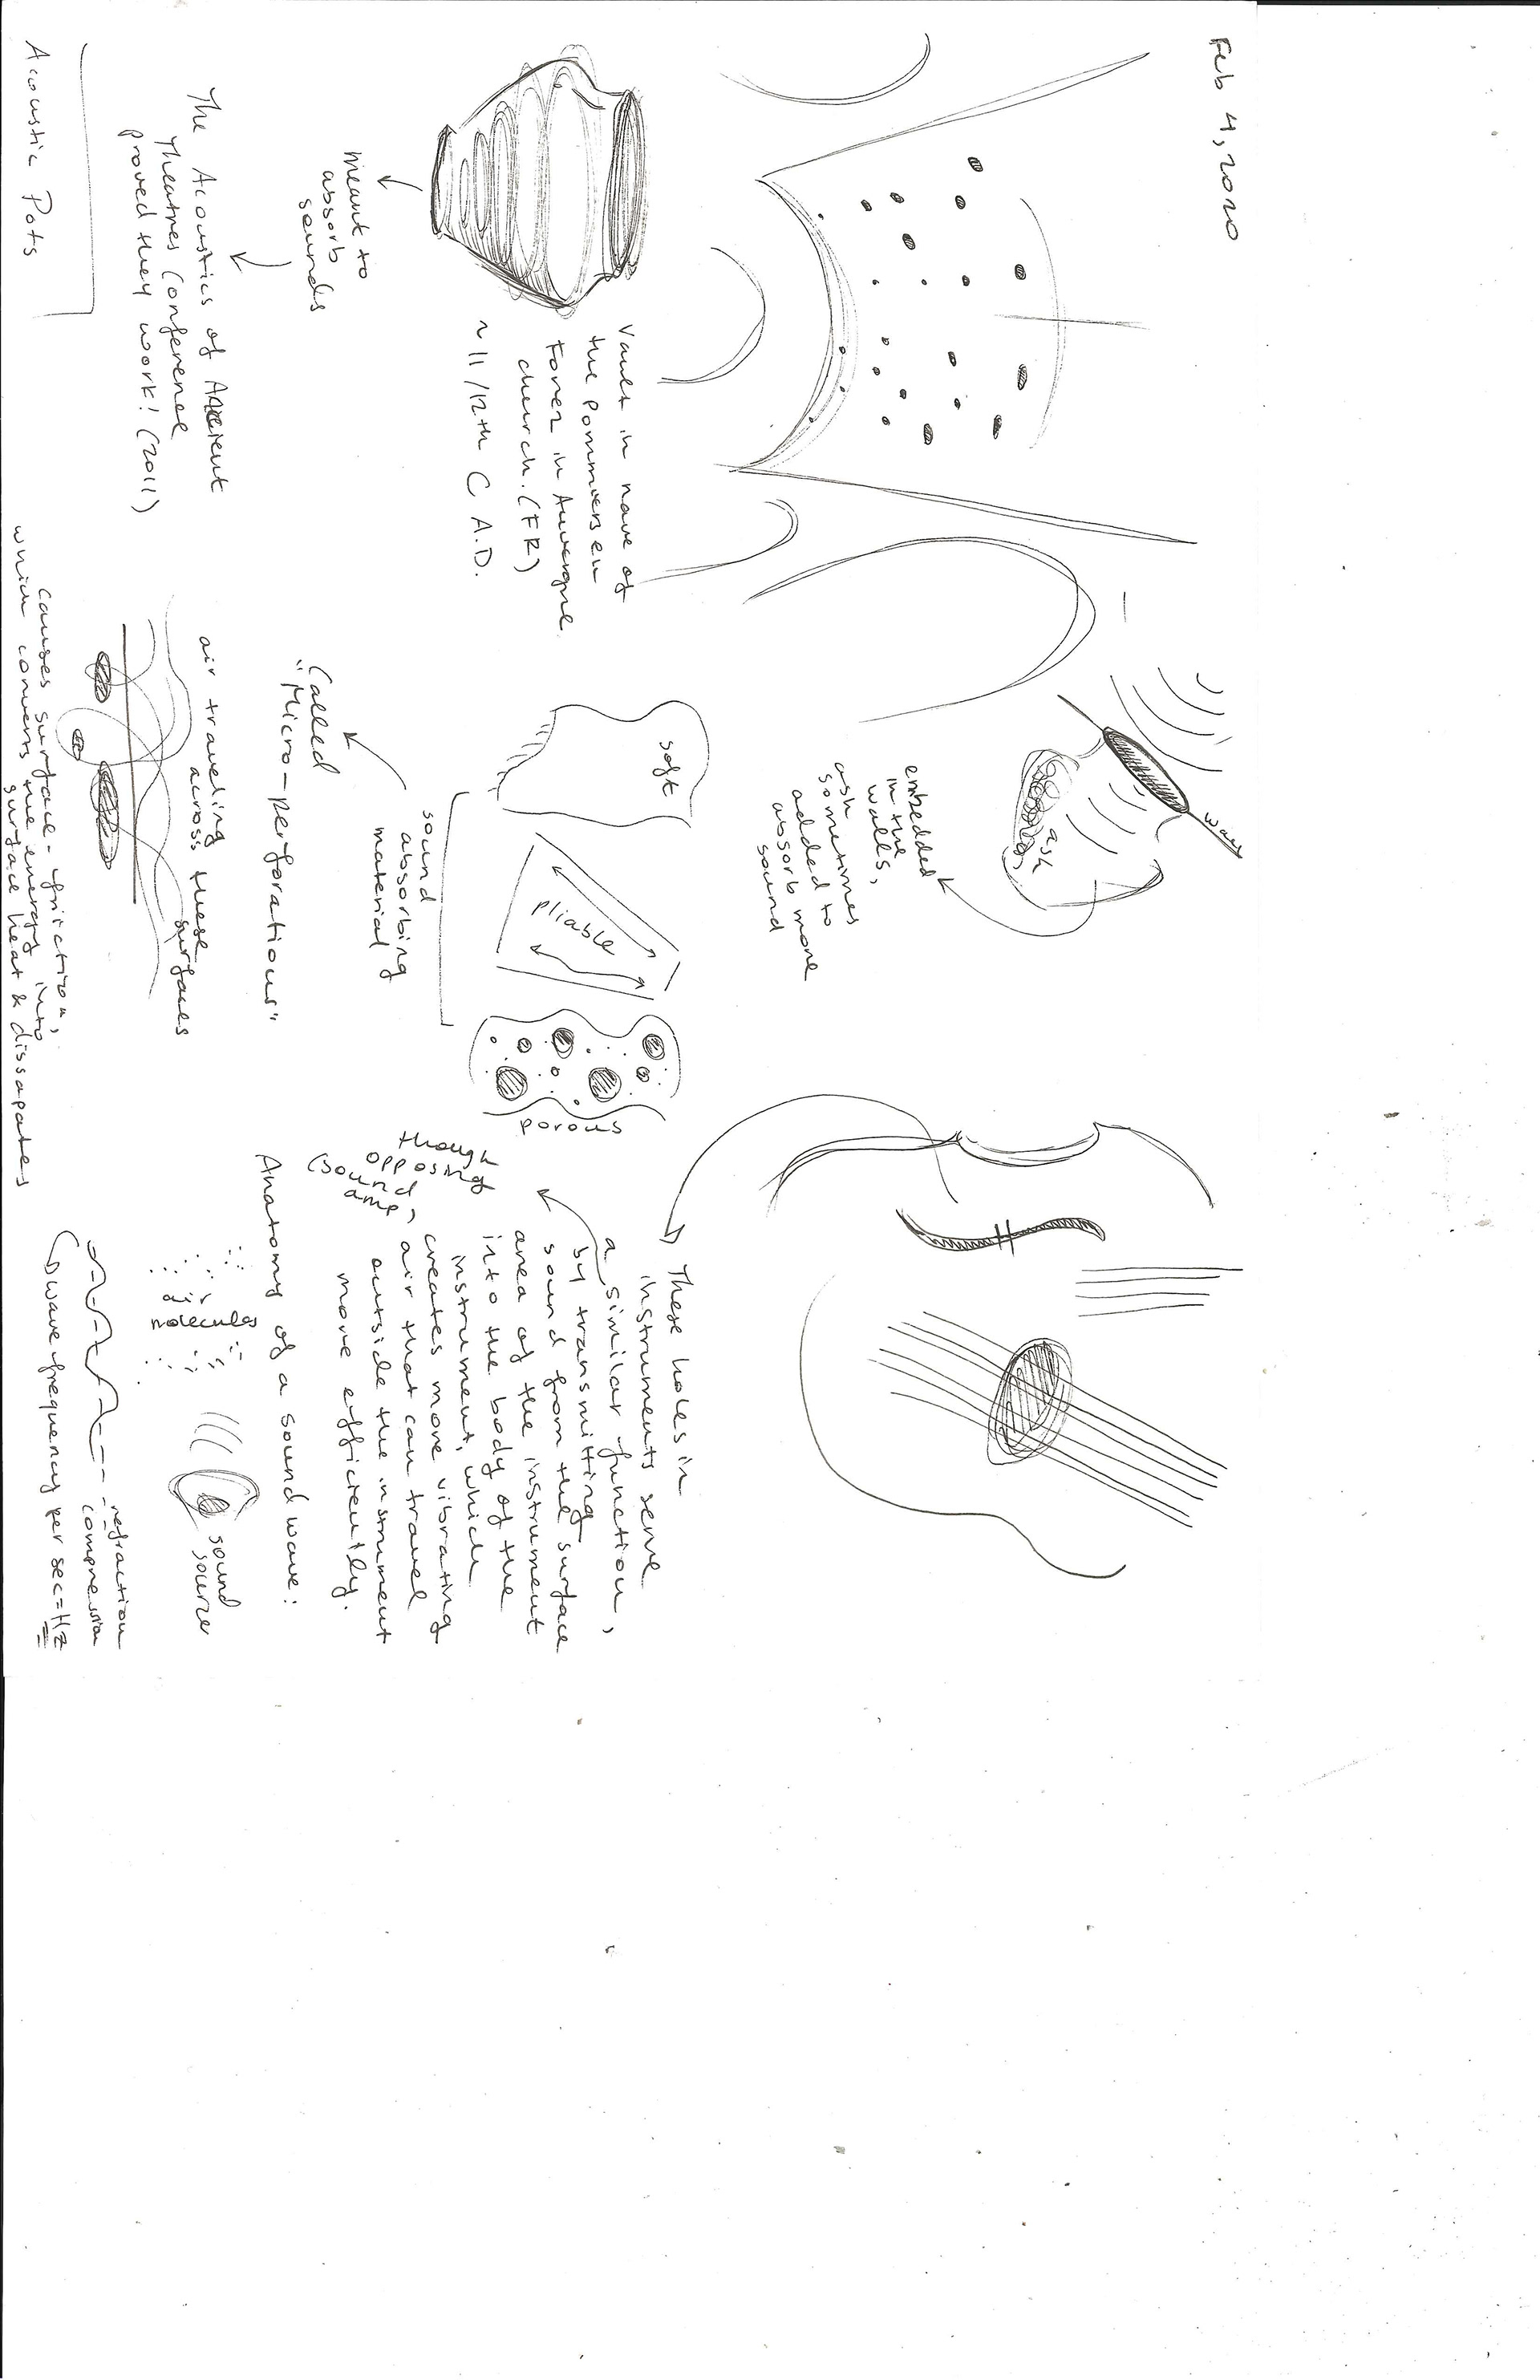 Feb 4, 2020
Vault in nave of
the Pommiers en
Forez in Auvergne
church. (FR)
~ 11/12th C A.D.
meant to
absorb
sounds
The Acoustics of Ancient
Theatres Conference
proved they work! (2011)
Acoustic Pots
wall
ash
embedded
in the
walls,
ash
sometimes
added to
absorb more
sound
soft
pliable
porous
sound
absorbing
material
Called
"Micro-perforations"
air traveling
across these
surfaces
causes surface-friction,
which converts the energy into
surface heat & dissapates
These holes in
instruments serve
a similar function,
by transmitting
sound from the surface
area of the instrument
into the body of the
instrument, which
creates more vibrating
air that can travel
outside the instrument
more efficiently.
though
opposing
(sound
amp)
Anatomy of a sound wave:
air
molecules
sound
source
refraction
compression
wave frequency per sec = Hz